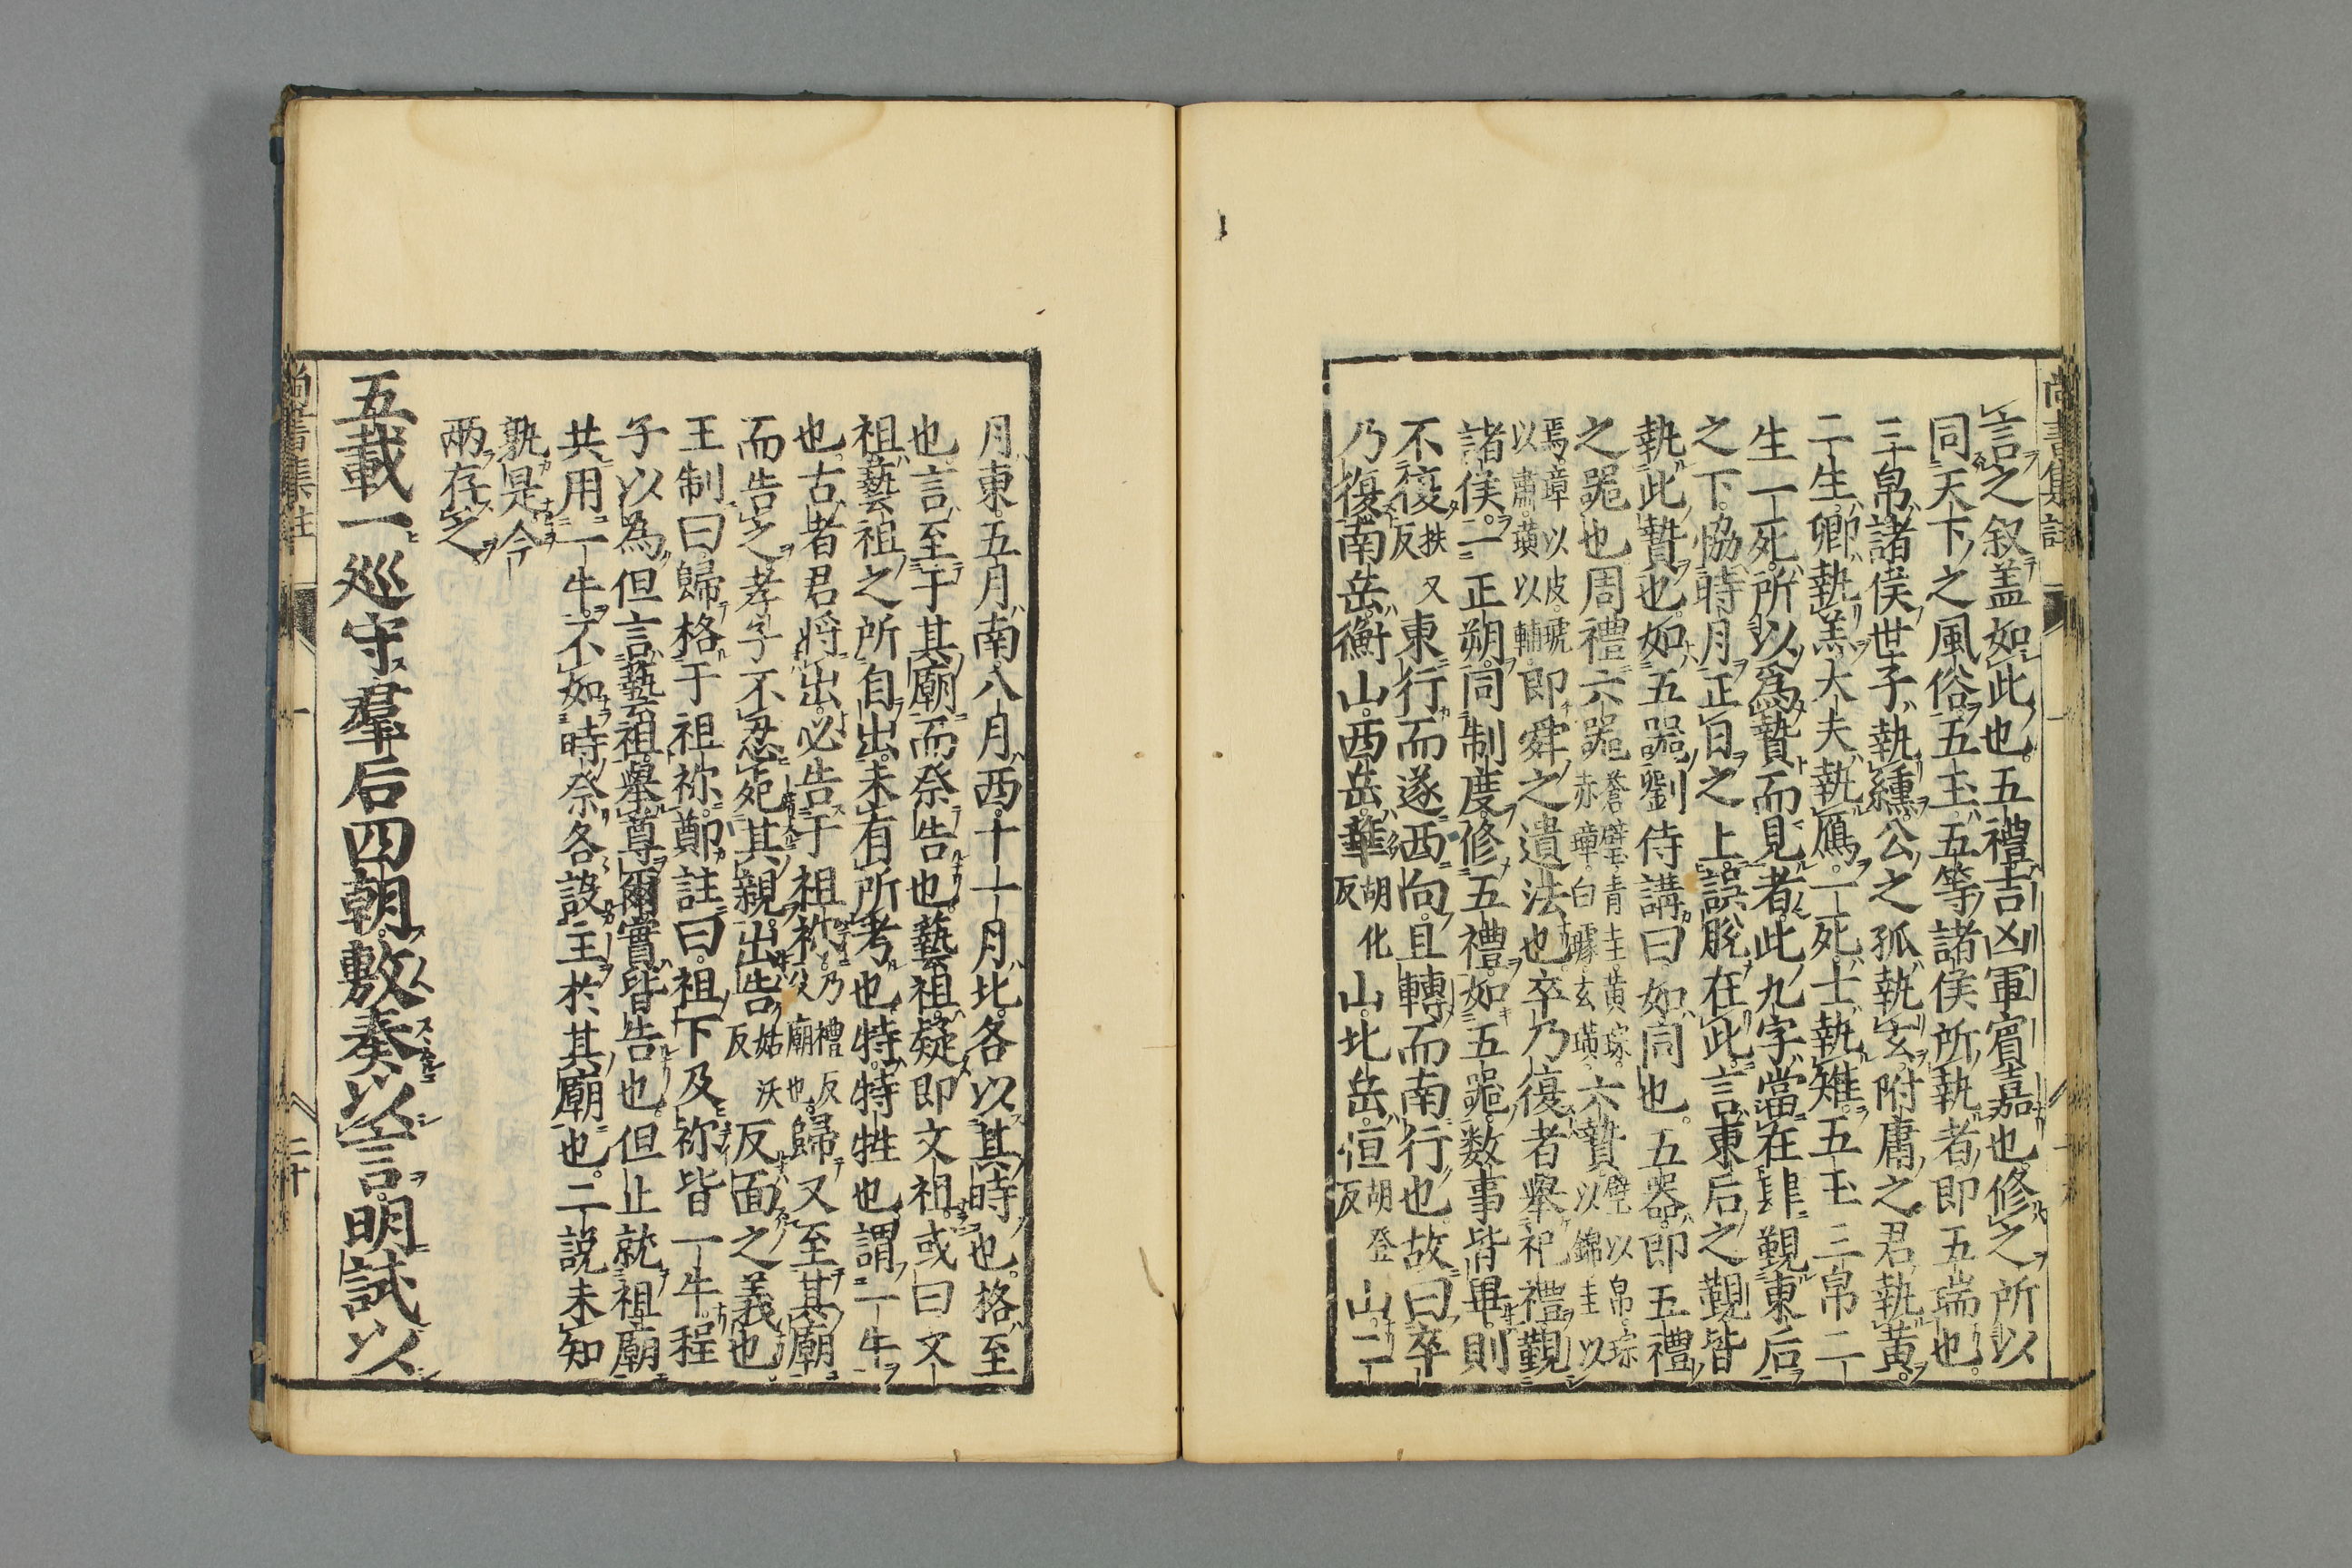 尚書集註 一
言之叙盖如此也五禮吉凶軍賓嘉也修之所以
同天下之風俗五玉五等諸侯所執者即五瑞也
三帛諸侯世子執纁公之孤執玄附庸之君執黃
二生卿執羔大夫執鴈一死士執雉五玉三帛二
生一死所以爲贄而見者此九字當在肆覲東后
之下協時月正日之上誤脫在此言東后之覲皆
執此贄也如五器劉侍講曰如同也五器即五禮
之器也周禮六器蒼璧青圭黃琮赤璋白琥玄璜六贄璧以帛琮以錦圭以
馬璋以皮琥以繡璜以黼即舜之遺法也卒乃復者舉祀禮覲
諸侯一正朔同制度修五禮如五器数事皆畢則
不復扶又反東行而遂西向且轉而南行也故曰卒
乃復南岳衡山西岳華胡化反山北岳恒胡登反山二
月東五月南八月西十一月北各以其時也格至
也言至于其廟而祭告也藝祖疑即文祖或曰文
祖藝祖之所自出未有所考也特特牲也謂一牛
也古者君將出必告于祖禰乃禮反父廟也歸又至其廟
而告之孝子不忍死其親出告姑沃反反面之義也
王制曰歸格于祖禰鄭註曰祖下及禰皆一牛程
子以為但言藝祖舉尊爾實皆告也但止就祖廟
共用一牛不如時祭各設主於其廟也二說未知
孰是今
兩存之
五載一巡守羣后四朝敷奏以言明試以
尚書集註 一 二十